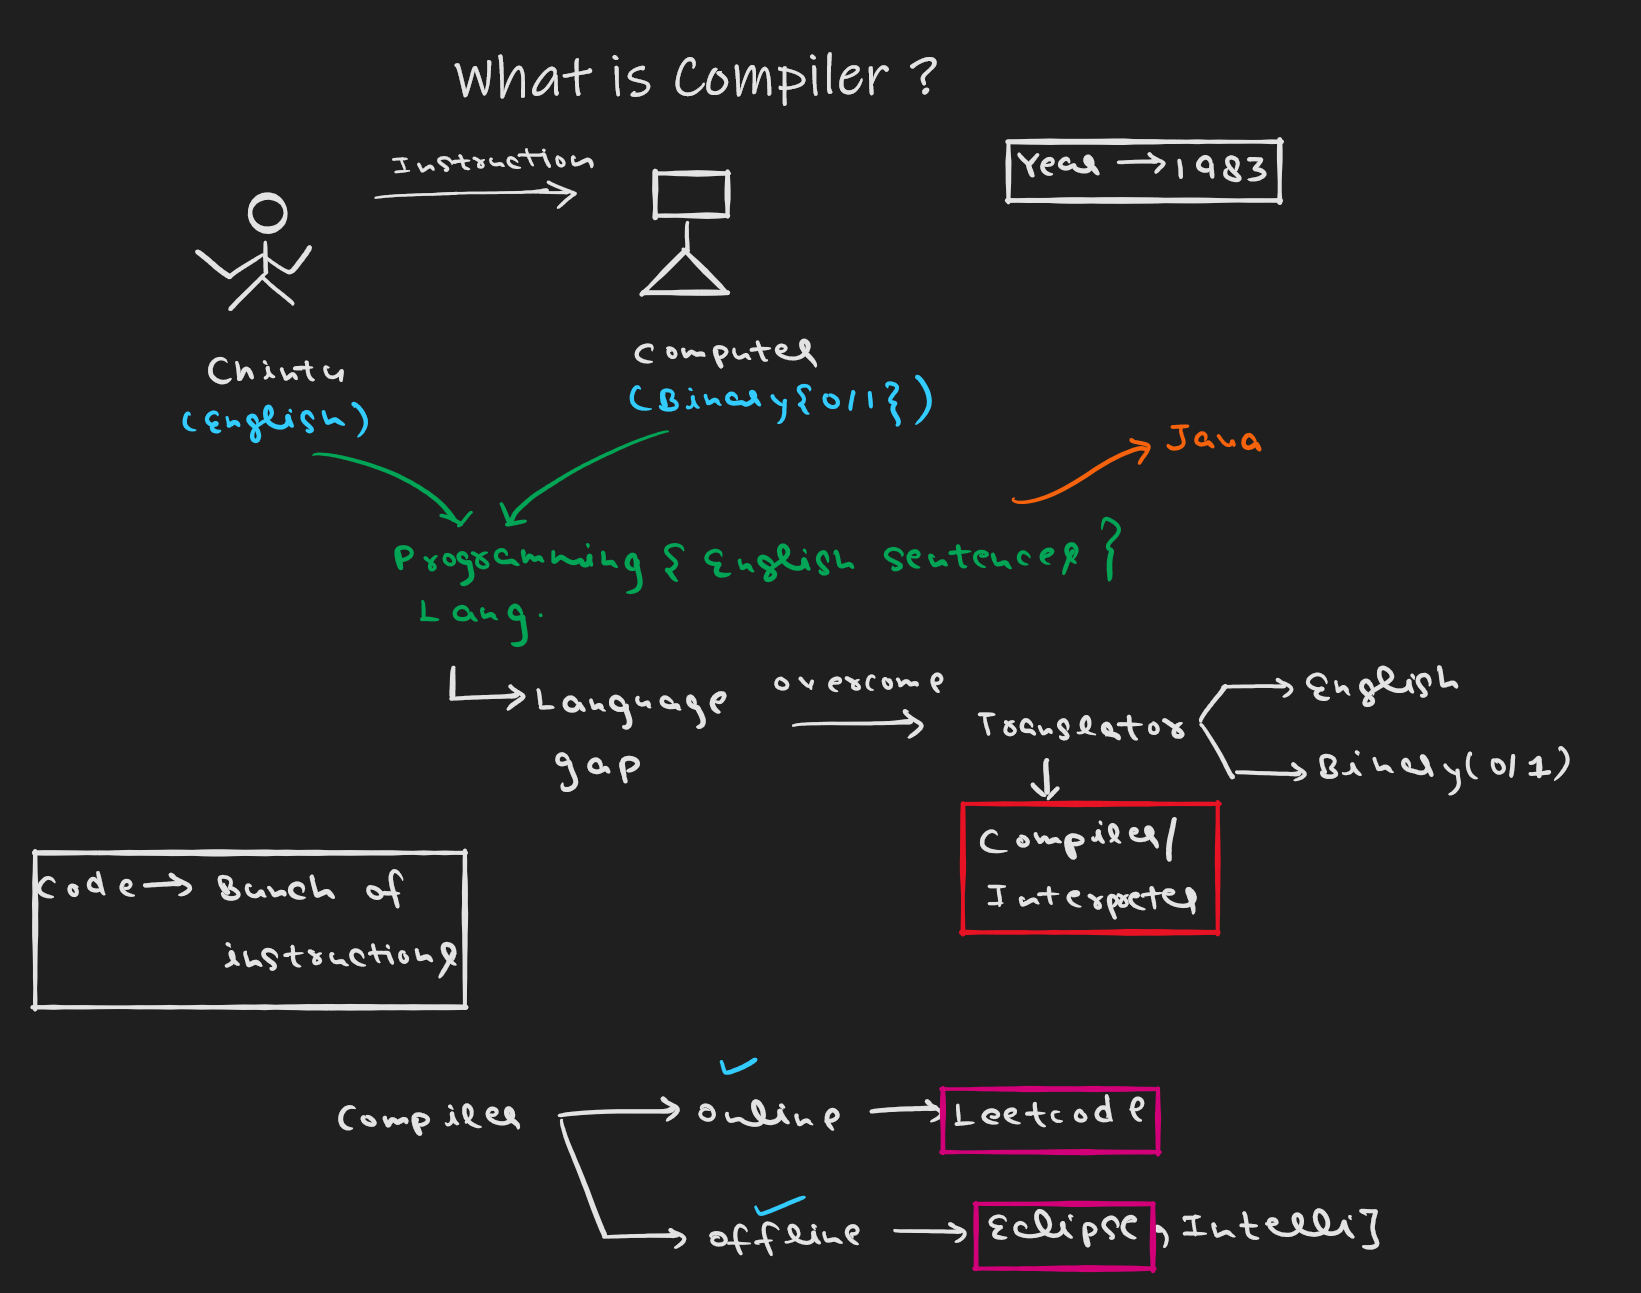 What is Compiler ?
Instruction
Year → 1983
Chintu
(English)
Computer
(Binary{0/1})
Java
Programming { English sentences }
Lang.
Language
gap
overcome
Translator
English
Binary(0/1)
Compiler/
Interpreter
Code → Bunch of
instructions
Compiler
online → Leetcode
offline → Eclipse, IntelliJ